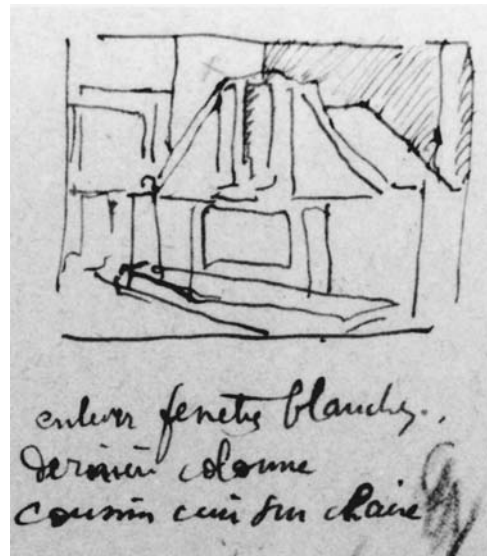 enlever fenetres blanches.,
dernière colonne
coussin cuir sur chaise